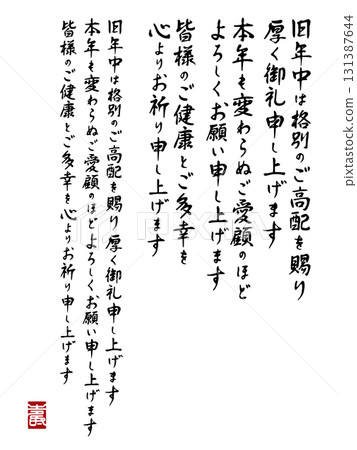 旧年中は格別のご高配を賜り
厚く御礼申し上げます
本年も変わらぬご愛顧のほど
よろしくお願い申し上げます
皆様のご健康とご多幸を
心よりお祈り申し上げます
旧年中は格別のご高配を賜り 厚く御礼申し上げます
本年も変わらぬご愛顧のほど よろしくお願い申し上げます
皆様のご健康とご多幸を 心よりお祈り申し上げます
PIXTA
pixta.jp - 131387644